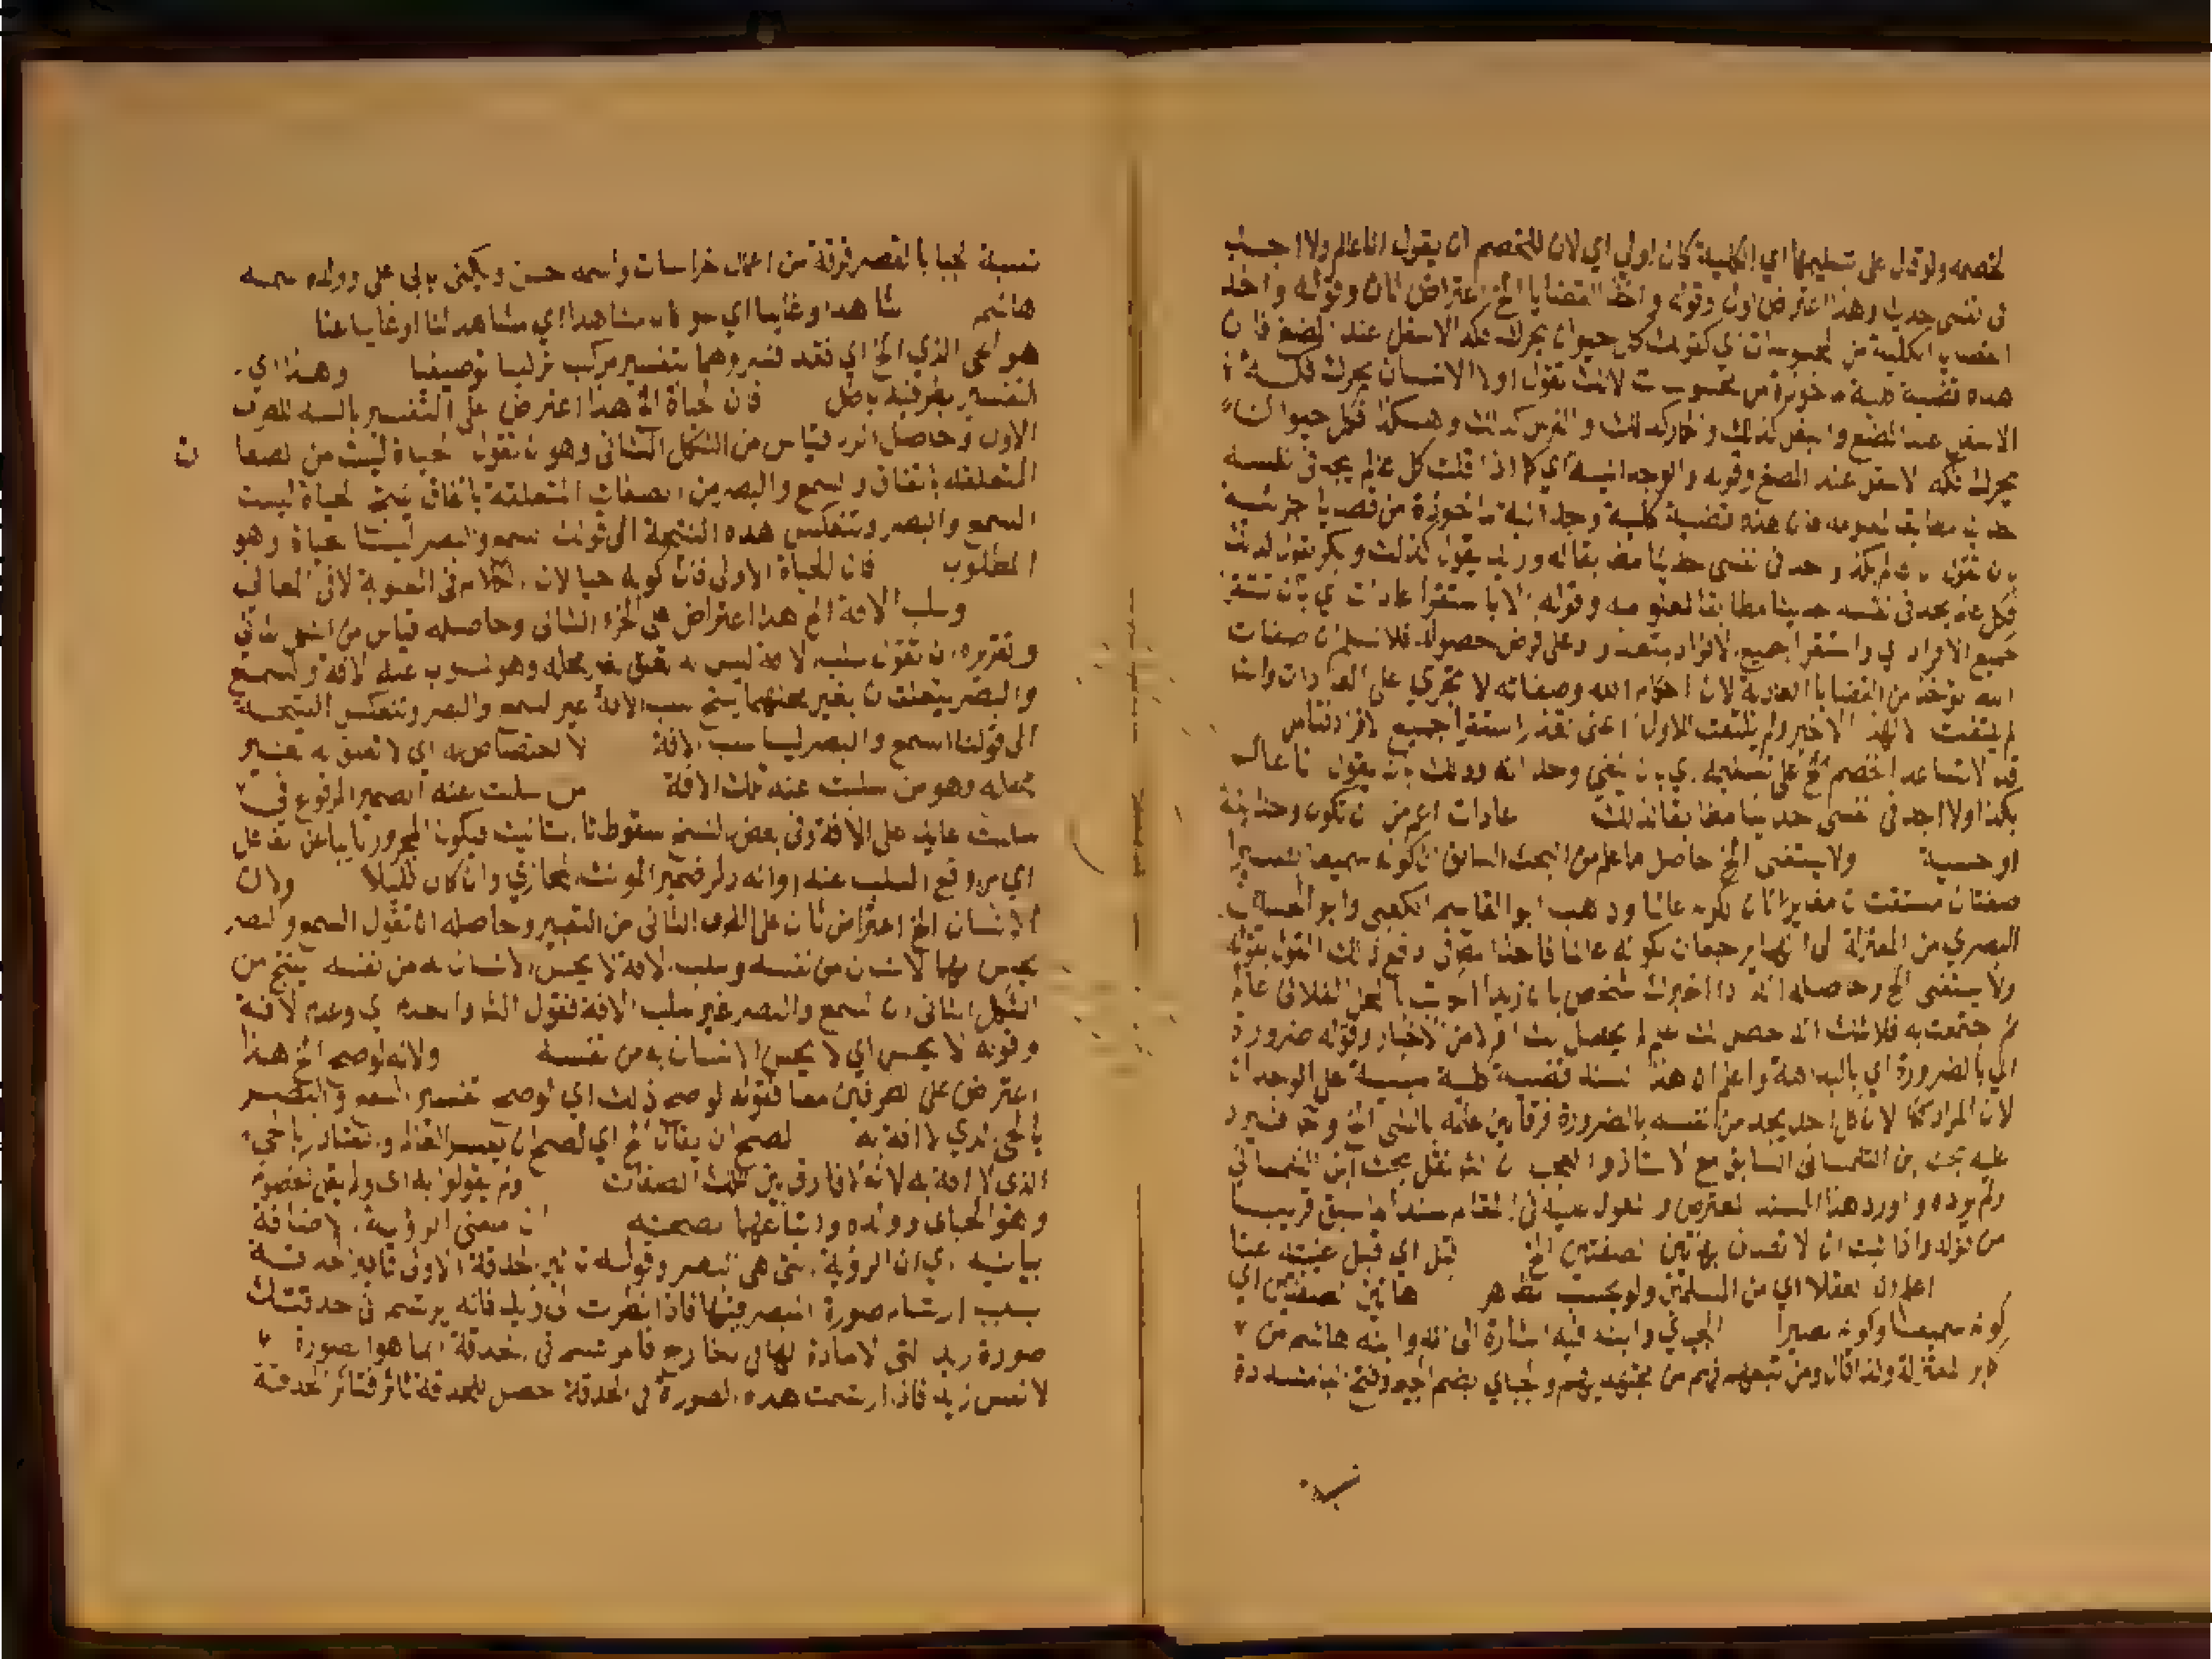 لخصمه ولو قال على تسليمها اي الكلية كان اولى اي لان للخصم ان يقول انا عالم ولا اجد
في نفسي حديثا وهذا اعتراض اول وقوله واخذ القضايا الخ اعتراض ثان وقوله واخذ
القضايا الكلية من المحسوسات اي كقولك كل حيوان يحرك فكه الاسفل عند المضغ فان
هذه قضية كلية ماخوذة من المحسوسات لانك تقول اولا الانسان يحرك فكه
الاسفل عند المضغ والبغل كذلك والحمار كذلك والفرس كذلك وهكذا فكل حيوان
يحرك فكه الاسفل عند المضغ وقوله والوجدانية اي كما اذا قلت كل عالم يجد في نفسه
حديثا مطابقا لمعلومه فان هذه قضية كلية وجدانية ماخوذة من قضايا جزئية
بان تقول انه اجد في نفسي حديثا مطابقا له وزيد يقول كذلك وبكر يقول كذلك
فكل عالم يجد في نفسه حديثا مطابقا لمعلومه وقوله الا باستقرا عادات اي بان تستقرا
جميع الافراد اي واستقرا جميع الافراد متعذر وعلى فرض حصوله فلا نسلم ان صفات
الله توخذ من القضايا العادية لان احكام الله وصفاته لا تجري على العادات وانما
لم يلتفت لهذا الاخير ولم يلتفت للاول اعني تعذر استقرا جميع الافراد
قد لا تساعد الخصم الخ على تسليمه اي بان ينفي وجدانه وذلك بان يقول انا عالم
بكذا ولا اجد في نفسي حديثا مطابقا لذلك عادات اعم من ان تكون وجدانية
او حسية ولا يستغنى الخ حاصل ما علم من البحث السابق ان كونه سميعا بصيرا
صفتان مستقلتان مغايرتان لكونه عالما وذهب ابو القاسم الكعبي وابو الحسين
البصري من المعتزلة الى انهما يرجعان لكونه عالما فاخذ المص في دفع ذلك القول بقوله
ولا يستغنى الخ وحاصله انه اذا اخبرك شخص بان زيدا الحديث بالمحل الفلاني عالم
ثم اجتمعت به فلا شك انه حصل لك علم لم يحصل لك اولا من الاخبار وقوله ضرورة
اي بالضرورة اي بالبداهة واعلم ان هذا السند قضية كلية مبنية على الوجدان
لان المراد كذا لان كل احد يجد من نفسه بالضرورة فرقا بين علمه بالشي الخ وقد
عليه بحث ابن التلمساني السابق مع الاستاذ والعجب ان الش نقل بحث ابن التلمساني
ولم يرده واورد هذا السند المعترض
من قوله واذا ثبت ان لا تعدان بهاتين الصفتين الخ قبل اي قبل غيبته عنا
اعلم ان العقلا اي من المسلمين ولو بحسب الظاهر هاتين الصفتين اي
كونه سميعا وكونه بصيرا الجبائي وابنه فيه اشارة الى انه وابنه هاشم من
اكابر المعتزلة ولذا قال ومن تبعهم من مجتهديهم والجبائي بضم الجيم وفتح البا مشددة
نسبة
نسبة لجبا بالقصر قرية من اعمال خراسان واسمه حسن ويكنى بابي علي وولده سميه
هاشم شاهدا وغايبا اي سوا كان مشاهدا اي مشاهدا لنا او غايبا عنا
هو الحي الذي الخ اي فقد فسروهما بتفسير مركب تركيبا توصيفيا وهذا اي
التفسير بطرفيه باطل فان الحياة الخ هذا اعتراض على التفسير بالنسبة للطرف
الاول وحاصل الرد قياس من الشكل الثاني وهو ان تقول الحياة ليست من الصفات
المتعلقة باتفاق والسمع والبصر من الصفات المتعلقة باتفاق ينتج الحياة ليست
السمع والبصر وتنعكس هذه النتيجة الى قولك السمع والبصر ليسا حياة وهو
المطلوب فان للحياة الاولى فان كونه حيا لان الكلام في المعنوية لا في المعاني
وسلب الافة الخ هذا اعتراض على الجزء الثاني وحاصله قياس من الشكل الثاني
وتقريره ان تقول سلب الافة ليس له تعلق بغير محله وهو المسلوب عنه الافة والسمع
والبصر يتعلقان بغير محلهما ينتج سلب الافة غير السمع والبصر وتنعكس النتيجة
الى قولنا السمع والبصر ليسا سلب الافة لاختصاصه اي لا تعلق له بغير
محله وهو من سلبت عنه تلك الافة من سلبت عنه الضمير المرفوع في
سلبت عايد على الافة وفي بعض النسخ سقوط تا التانيث فيكون المجرور نايبا عن الفاعل
اي من وقع السلب عنه او انه ذكر ضمير المونث المجازي وان كان قليلا ولان
الانسان الخ اعتراض ثان على الطرف الثاني من التفسير وحاصله ان تقول السمع والبصر
يحس بهما الانسان من نفسه وسلب الافة لا يحس الانسان به من نفسه ينتج من
الشكل الثاني ان السمع والبصر غير سلب الافة فقول الش والعدم اي وعدم الافة
وقوله لا يحس اي لا يحس الانسان به من نفسه ولانه لو صح الخ هذا
اعتراض على الطرفين معا فقوله لو صح ذلك اي لو صح تفسير السمع والبصير
بالحي الذي لا افة به لصح ان يقال الخ اي لصح ان يفسر العالم والقادر بالحي
الذي لا افة به لانه لا فارق بين تلك الصفات ولم يقولوا به اي ولم يقل الخصوم
وهو الجباي وولده واتباعهما بصحته ان معنى الرؤية الاضافة
بيانية اي ان الرؤية التي هي البصر وقوله تاثير الحدقة الاولى تاثير الحدقة
بسبب ارتسام صورة المبصر فيها فاذا نظرت الى زيد فانه يرتسم في حدقتك
صورة زيد التي لا مادة لها في الخارج فالمرتسم في الحدقة انما هو الصورة
لا نفس زيد فاذا ارتسمت هذه الصورة في الحدقة حصل للحدقة تاثر فتاثر الحدقة